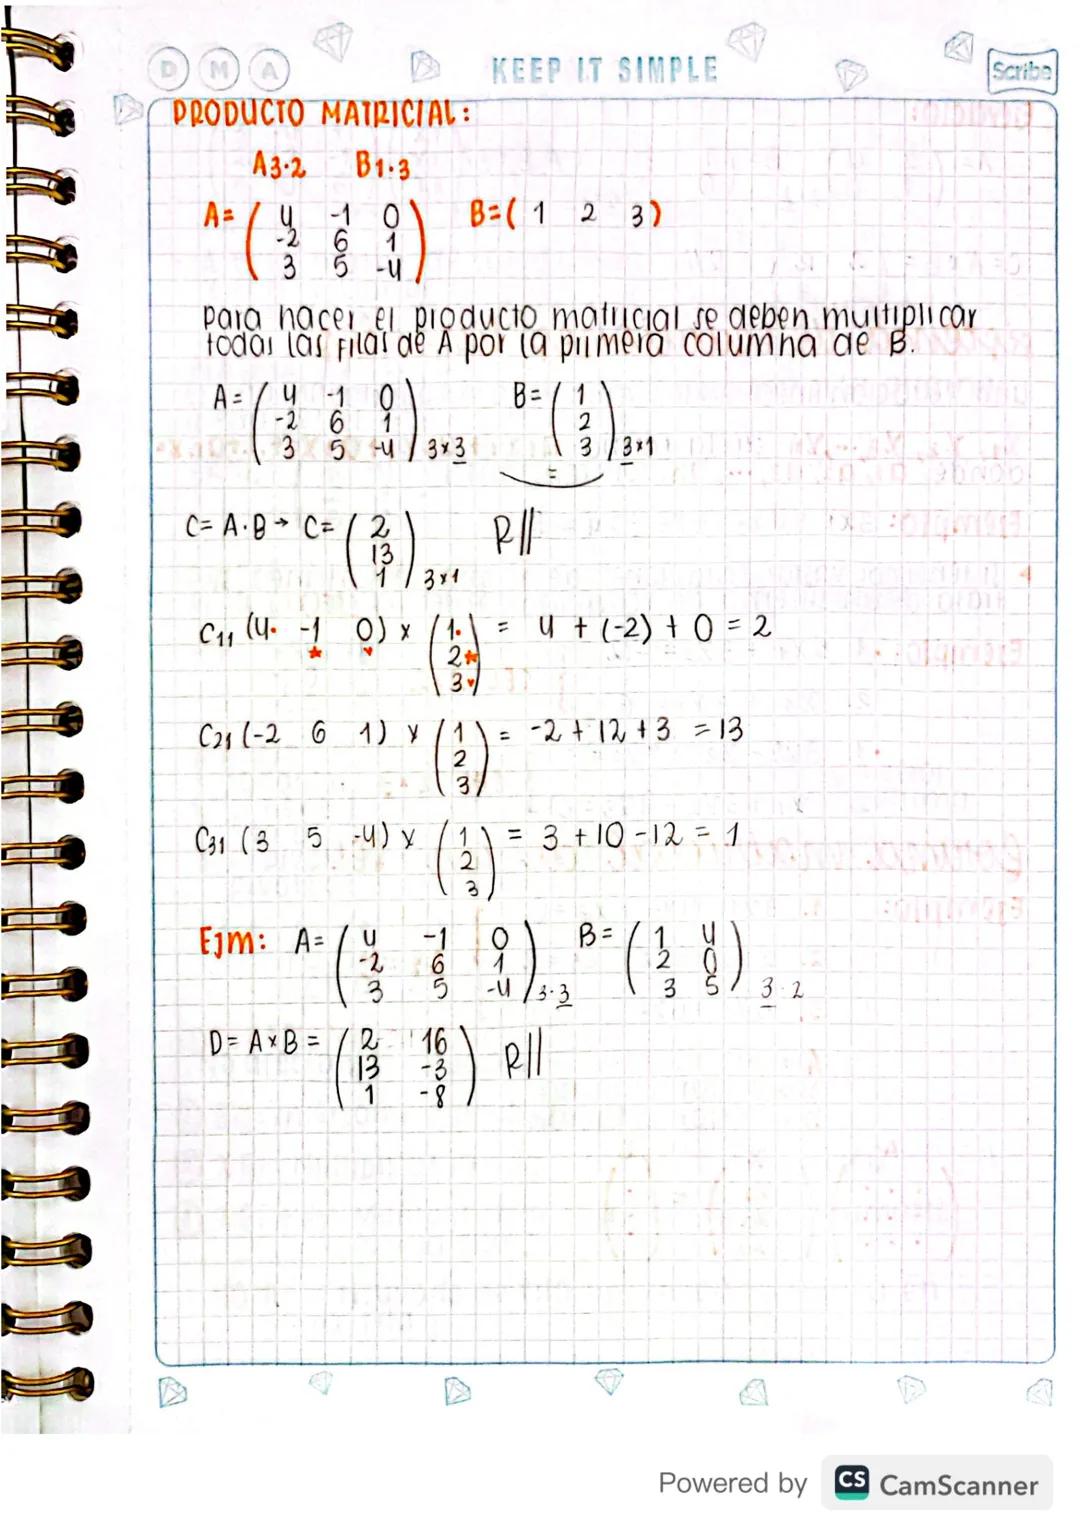 D M A KEEP IT SIMPLE Scribe
PRODUCTO MATRICIAL:
A3·2 B1·3
A= ( 4 -1 0 ) B=( 1 2 3 )
-2 6 1
3 5 -4
Para hacer el producto matricial se deben multiplicar
todas las filas de A por la primera columna de B.
A = ( 4 -1 0 ) B= ( 1 )
-2 6 1 2
3 5 -4 3x3 3 3x1
=
C= A·B → C= ( 2 ) R//
13
1 3x1
C11 (4· -1 0) x ( 1· ) = 4 + (-2) + 0 = 2
★ ♥ 2★
3♥
C21 (-2 6 1) x ( 1 ) = -2 + 12 + 3 = 13
2
3
C31 (3 5 -4) x ( 1 ) = 3 + 10 - 12 = 1
2
3
Ejm: A= ( 4 -1 0 ) B= ( 1 4 )
-2 6 1 2 0
3 5 -4 3·3 3 5 3·2
D= A x B = ( 2 16 ) R//
13 -3
1 -8
Powered by CS CamScanner